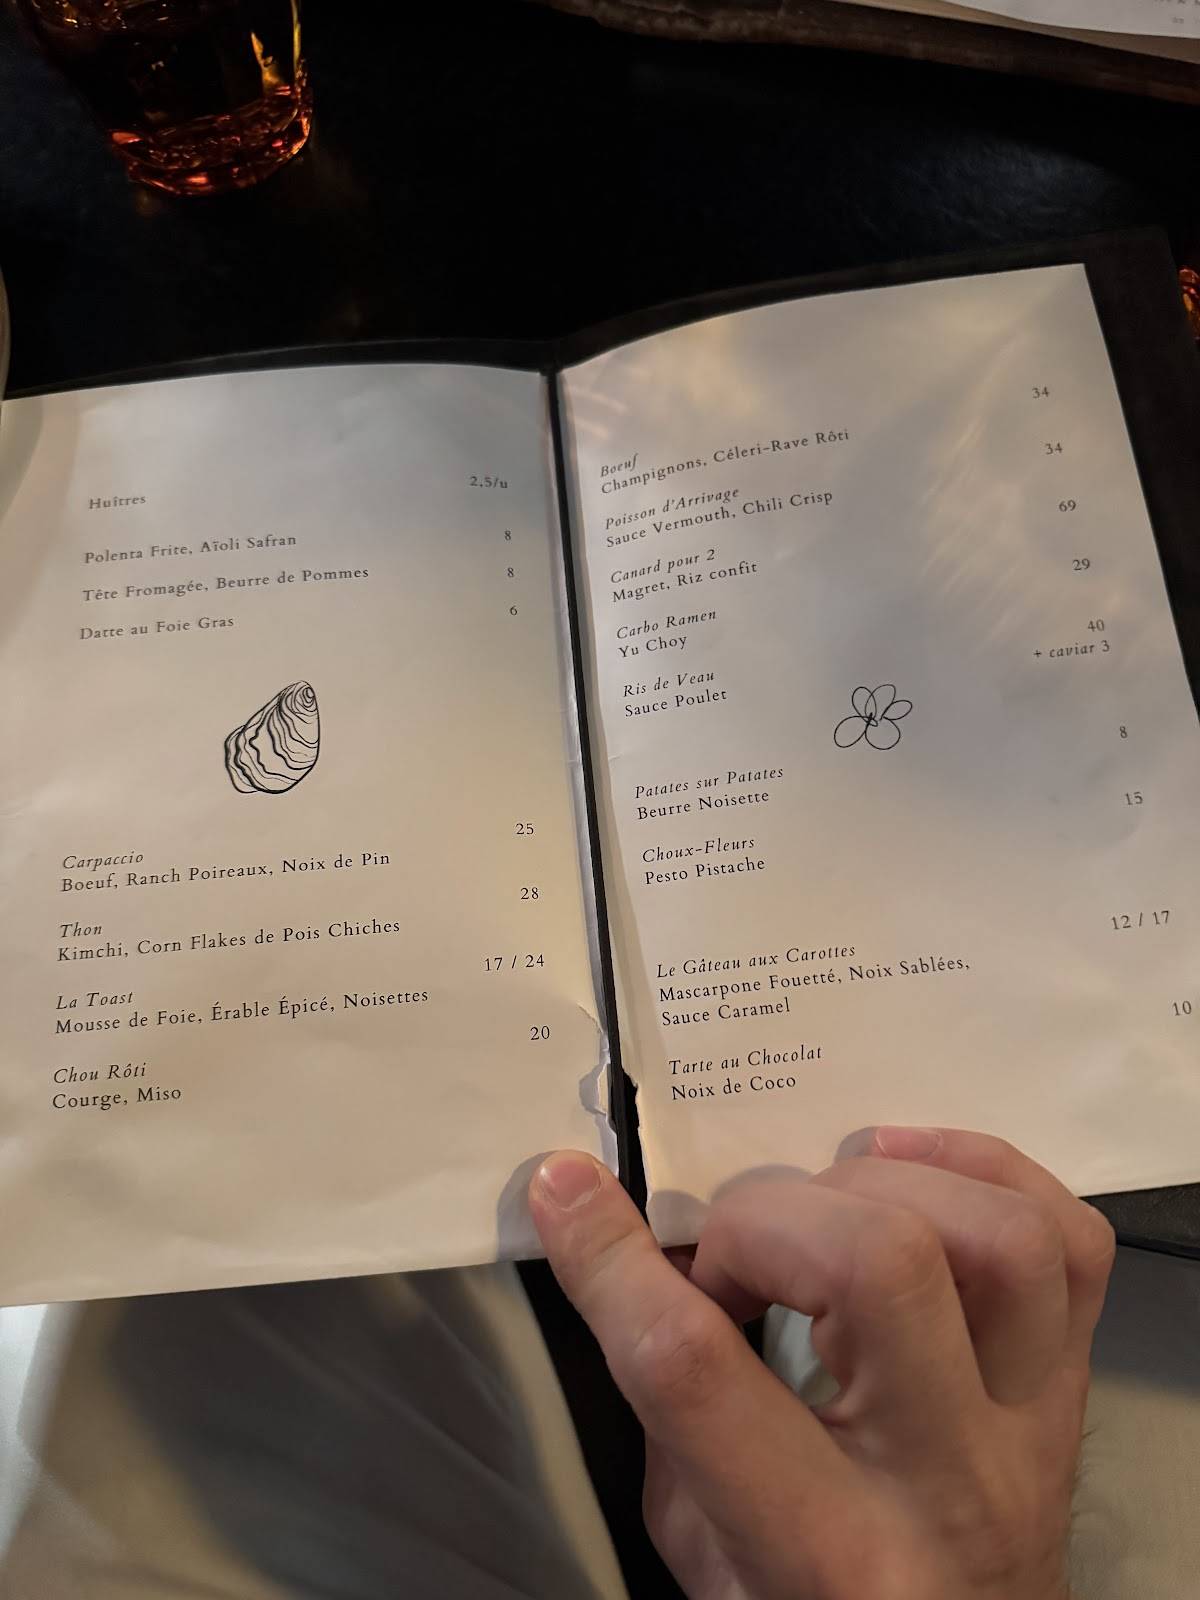 Huîtres 2,5/u
Polenta Frite, Aïoli Safran 8
Tête Fromagée, Beurre de Pommes 8
Datte au Foie Gras 6
Carpaccio 25
Boeuf, Ranch Poireaux, Noix de Pin
Thon 28
Kimchi, Corn Flakes de Pois Chiches
La Toast 17 / 24
Mousse de Foie, Érable Épicé, Noisettes
Chou Rôti 20
Courge, Miso
Boeuf 34
Champignons, Céleri-Rave Rôti
Poisson d'Arrivage 34
Sauce Vermouth, Chili Crisp
Canard pour 2 69
Magret, Riz confit
Carbo Ramen 29
Yu Choy
Ris de Veau 40
Sauce Poulet + caviar 3
Patates sur Patates 8
Beurre Noisette
Choux-Fleurs 15
Pesto Pistache
Le Gâteau aux Carottes 12 / 17
Mascarpone Fouetté, Noix Sablées,
Sauce Caramel
Tarte au Chocolat 10
Noix de Coco